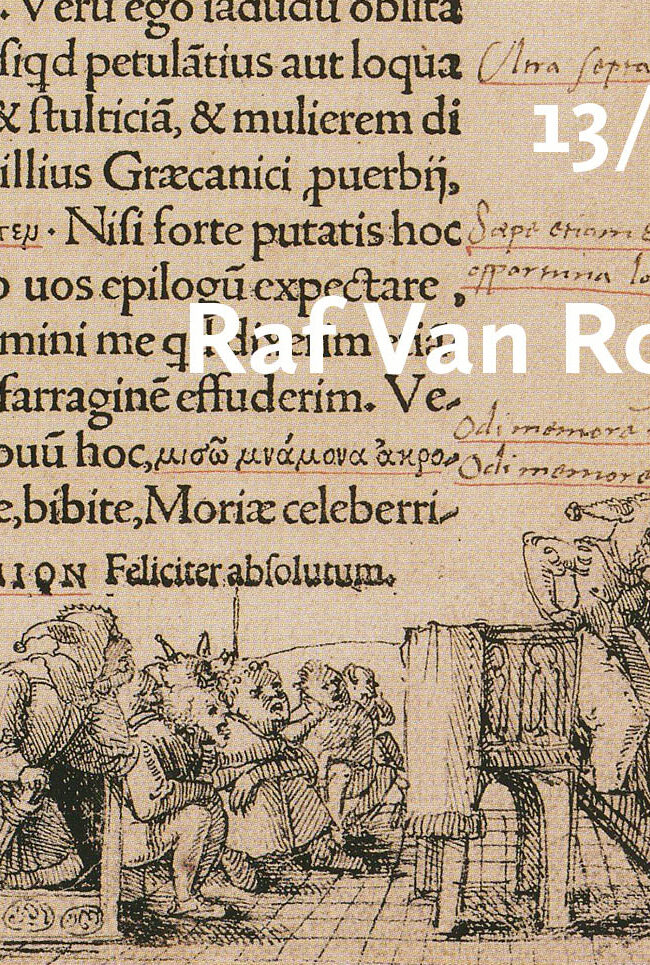 . Veru ego iādudū oblita
siqd petulātius aut loqua
& stulticiā, & mulierem di
illius Græcanici ꝓuerbij,
τεμ. Nisi forte putatis hoc
uos epilogū expectare,
mini me qd dixerim etiā
farraginē effuderim. Ve-
ouū hoc, μισῶ μνάμονα ἀκρο-
e, bibite, Moriæ celeberri-
ΙΙΟΝ Feliciter absolutum.
Vltra septa
Sæpe etiam
opportuna lo
Odi memorē
Odi memore
13/
Raf Van Ro